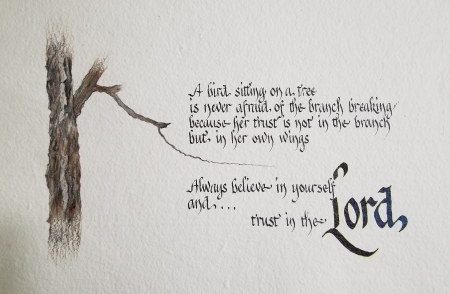 A bird sitting on a tree
is never afraid of the branch breaking
because her trust is not in the branch
but, in her own wings
Always believe in yourself
and, ...
trust in the Lord,